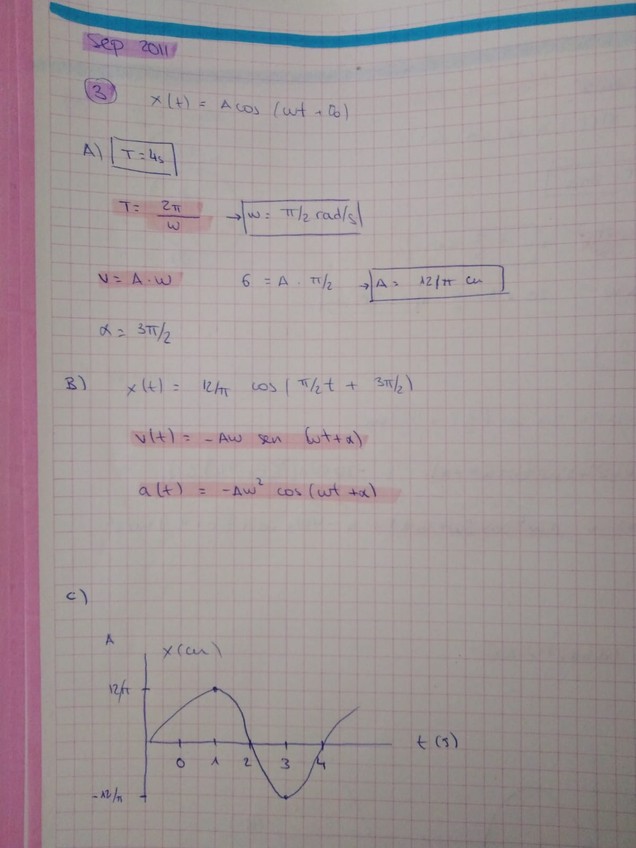 Sep 2011
3
x(t) = A cos (ωt + θ0)
A) T = 4s
T = 2π/ω → ω = π/2 rad/s
v = A · ω 6 = A · π/2 → A = 12/π cm
α = 3π/2
B) x(t) = 12/π cos(π/2t + 3π/2)
v(t) = -Aω sen (ωt+α)
a(t) = -Aω² cos(ωt+α)
C)
A x(cm)
12/π
0 1 2 3 4 t(s)
-12/π